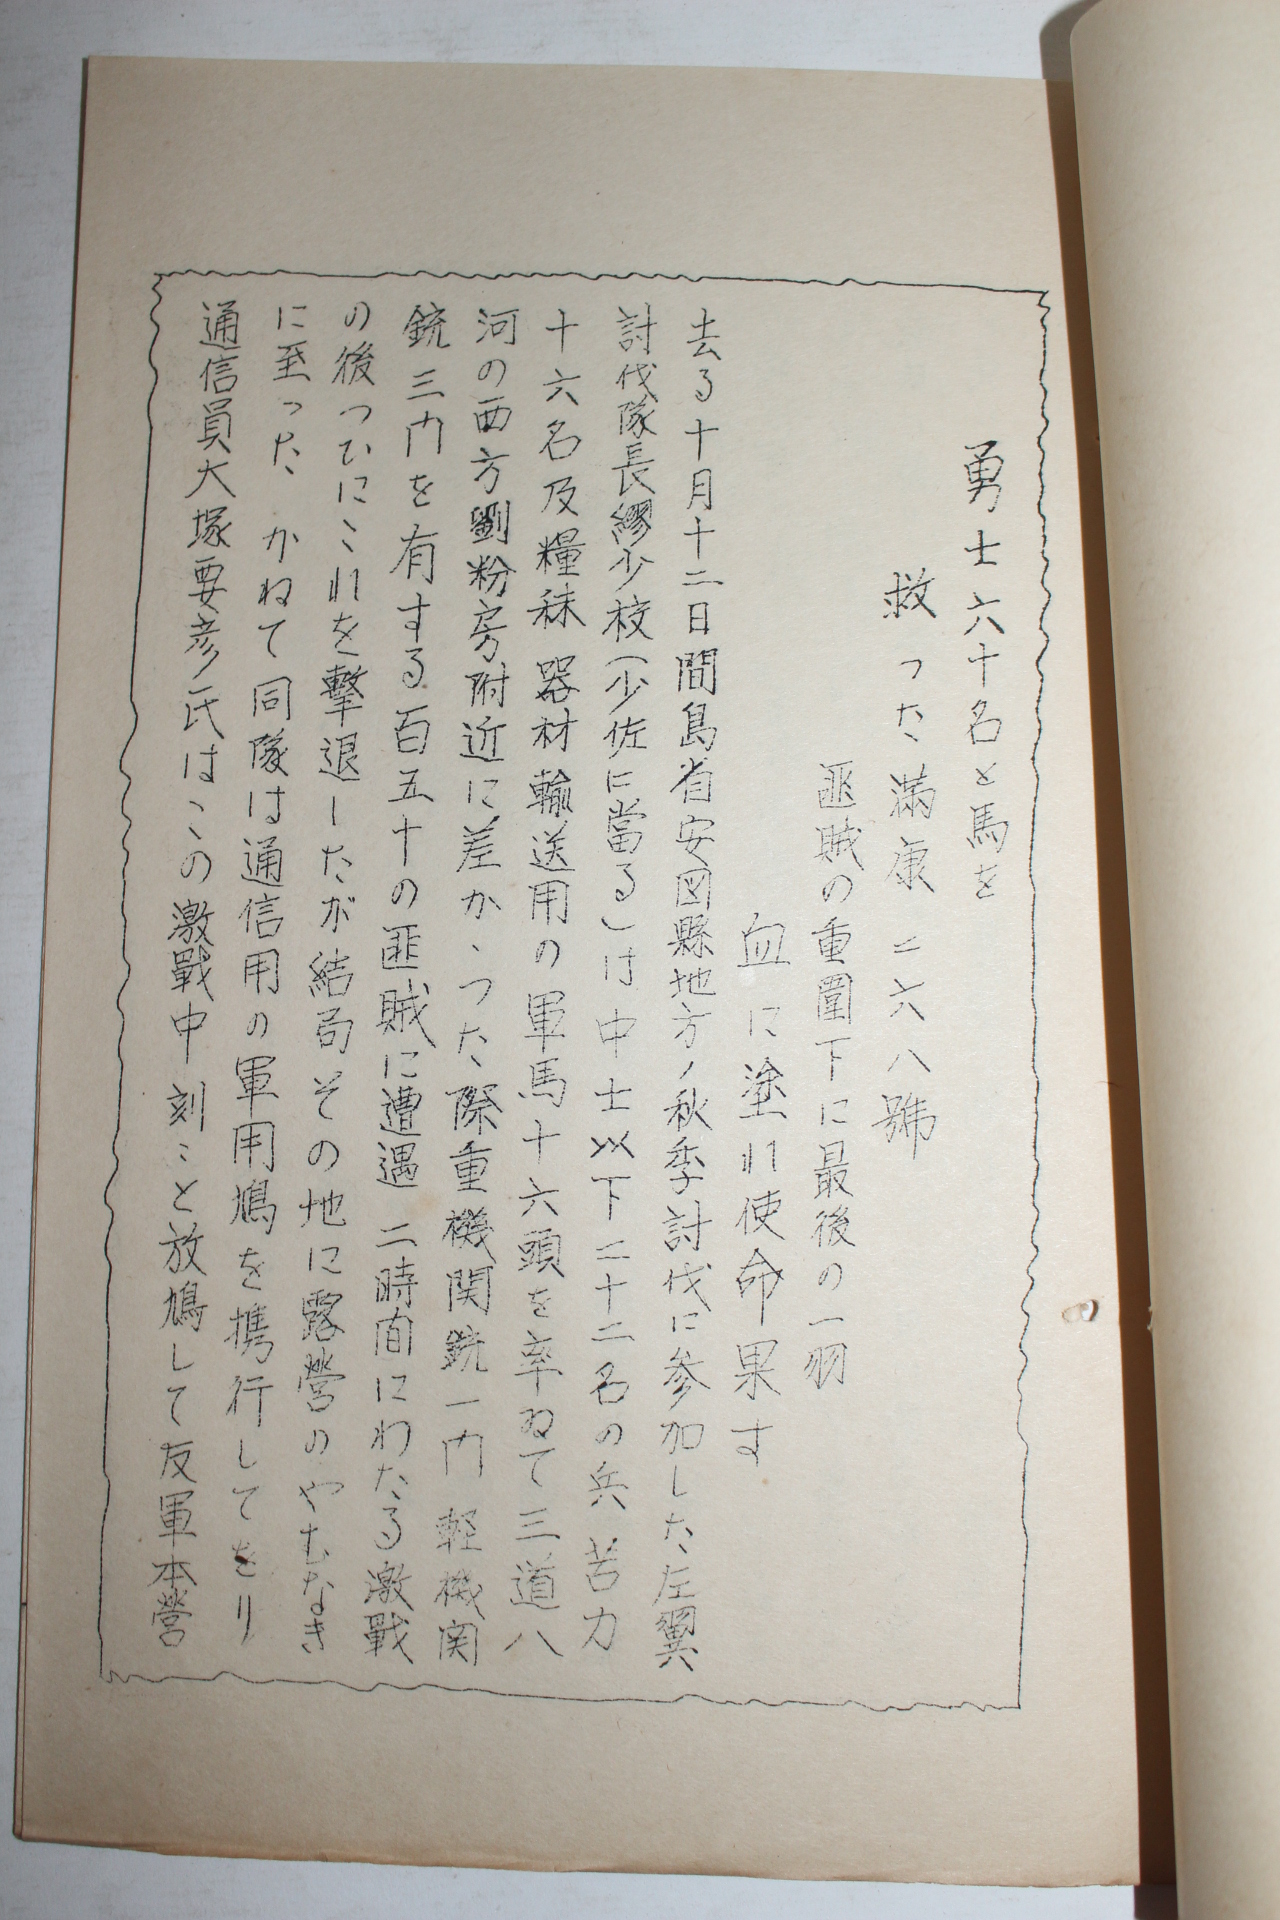 勇士六十名と馬を
救った満康二六八號
匪賊の重圍下に最後の一羽
血に塗れ使命果す
去る十月十二日間島省安図縣地方ノ秋季討伐に参加した左翼
討伐隊長繆少校(少佐に當る)は中士以下二十二名の兵 苦力
十六名及糧秣 器材 輸送用の軍馬十六頭を率ゐて三道八
河の西方劉粉房附近に差かゝつた際重機関銃一門 軽機関
銃三門を有する百五十の匪賊に遭遇 二時間にわたる激戰
の後つひにこれを撃退したが結局その地に露營のやむなき
に至った かねて同隊は通信用の軍用鳩を携行してをり
通信員大塚要彦氏はこの激戰中刻々と放鳩して友軍本營